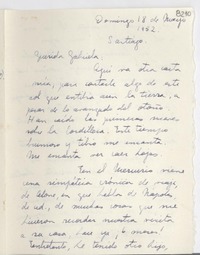 8240
Domingo 18 de Mayo
1952
Santiago.
Querida Gabriela,
Aquí va otra carta
mía, para contarle algo de este
sol que entibia aún la tierra, a
pesar de lo avanzado del otoño.
Han caído las primeras nieves
sobre la Cordillera. Este tiempo
brumoso y tibio me encanta.
Me encanta ver caer hojas.
En el Mercurio viene
una simpática crónica de viaje,
de Alone, en que habla de Nápoles,
de ud., de muchas cosas que me
hicieron recordar nuestra visita
a su casa
Entretanto, he tenido otra hija,